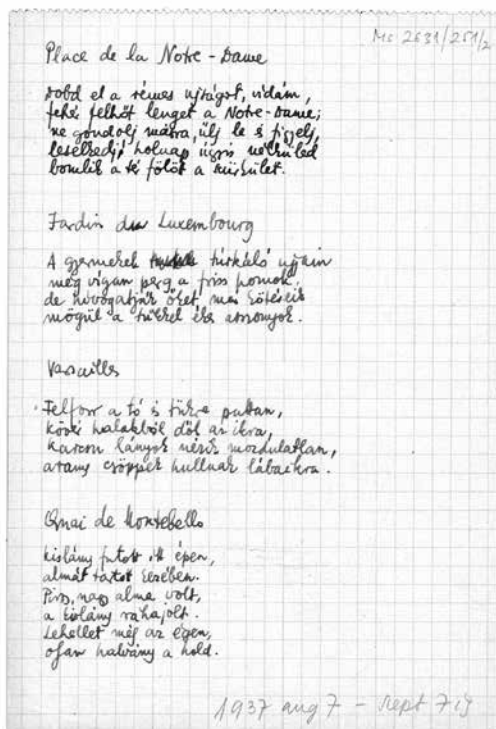 Ms 2631/251/2
Place de la Notre-Dame
Dobd el a rémes ujságot, vidám,
fehér felhőt lenget a Notre-Dame;
ne gondolj másra, ülj le és figyelj,
leselkedj, holnap úgyis nélküled
bomlik a tér fölött a szürkület.
Jardin du Luxembourg
A gyermekek turkáló ujjain
még vigan pereg a friss homok,
de hivogatják őket, már kötéseik
mögül a tűkkel ékes asszonyok.
Versailles
Felforr a tó és tükre pattan,
kövér halakból dől az ikra,
karcsu lányok nézik mozdulatlan,
arany csöppek hullnak lábaikra.
Quai de Montebello
kislány futott itt épen,
almát tartott kezében.
Piros, nagy alma volt,
a kislány ráhajolt.
Lehellet még az égen,
olyan halvány a hold.
1937 aug 7 - sept 7 ig